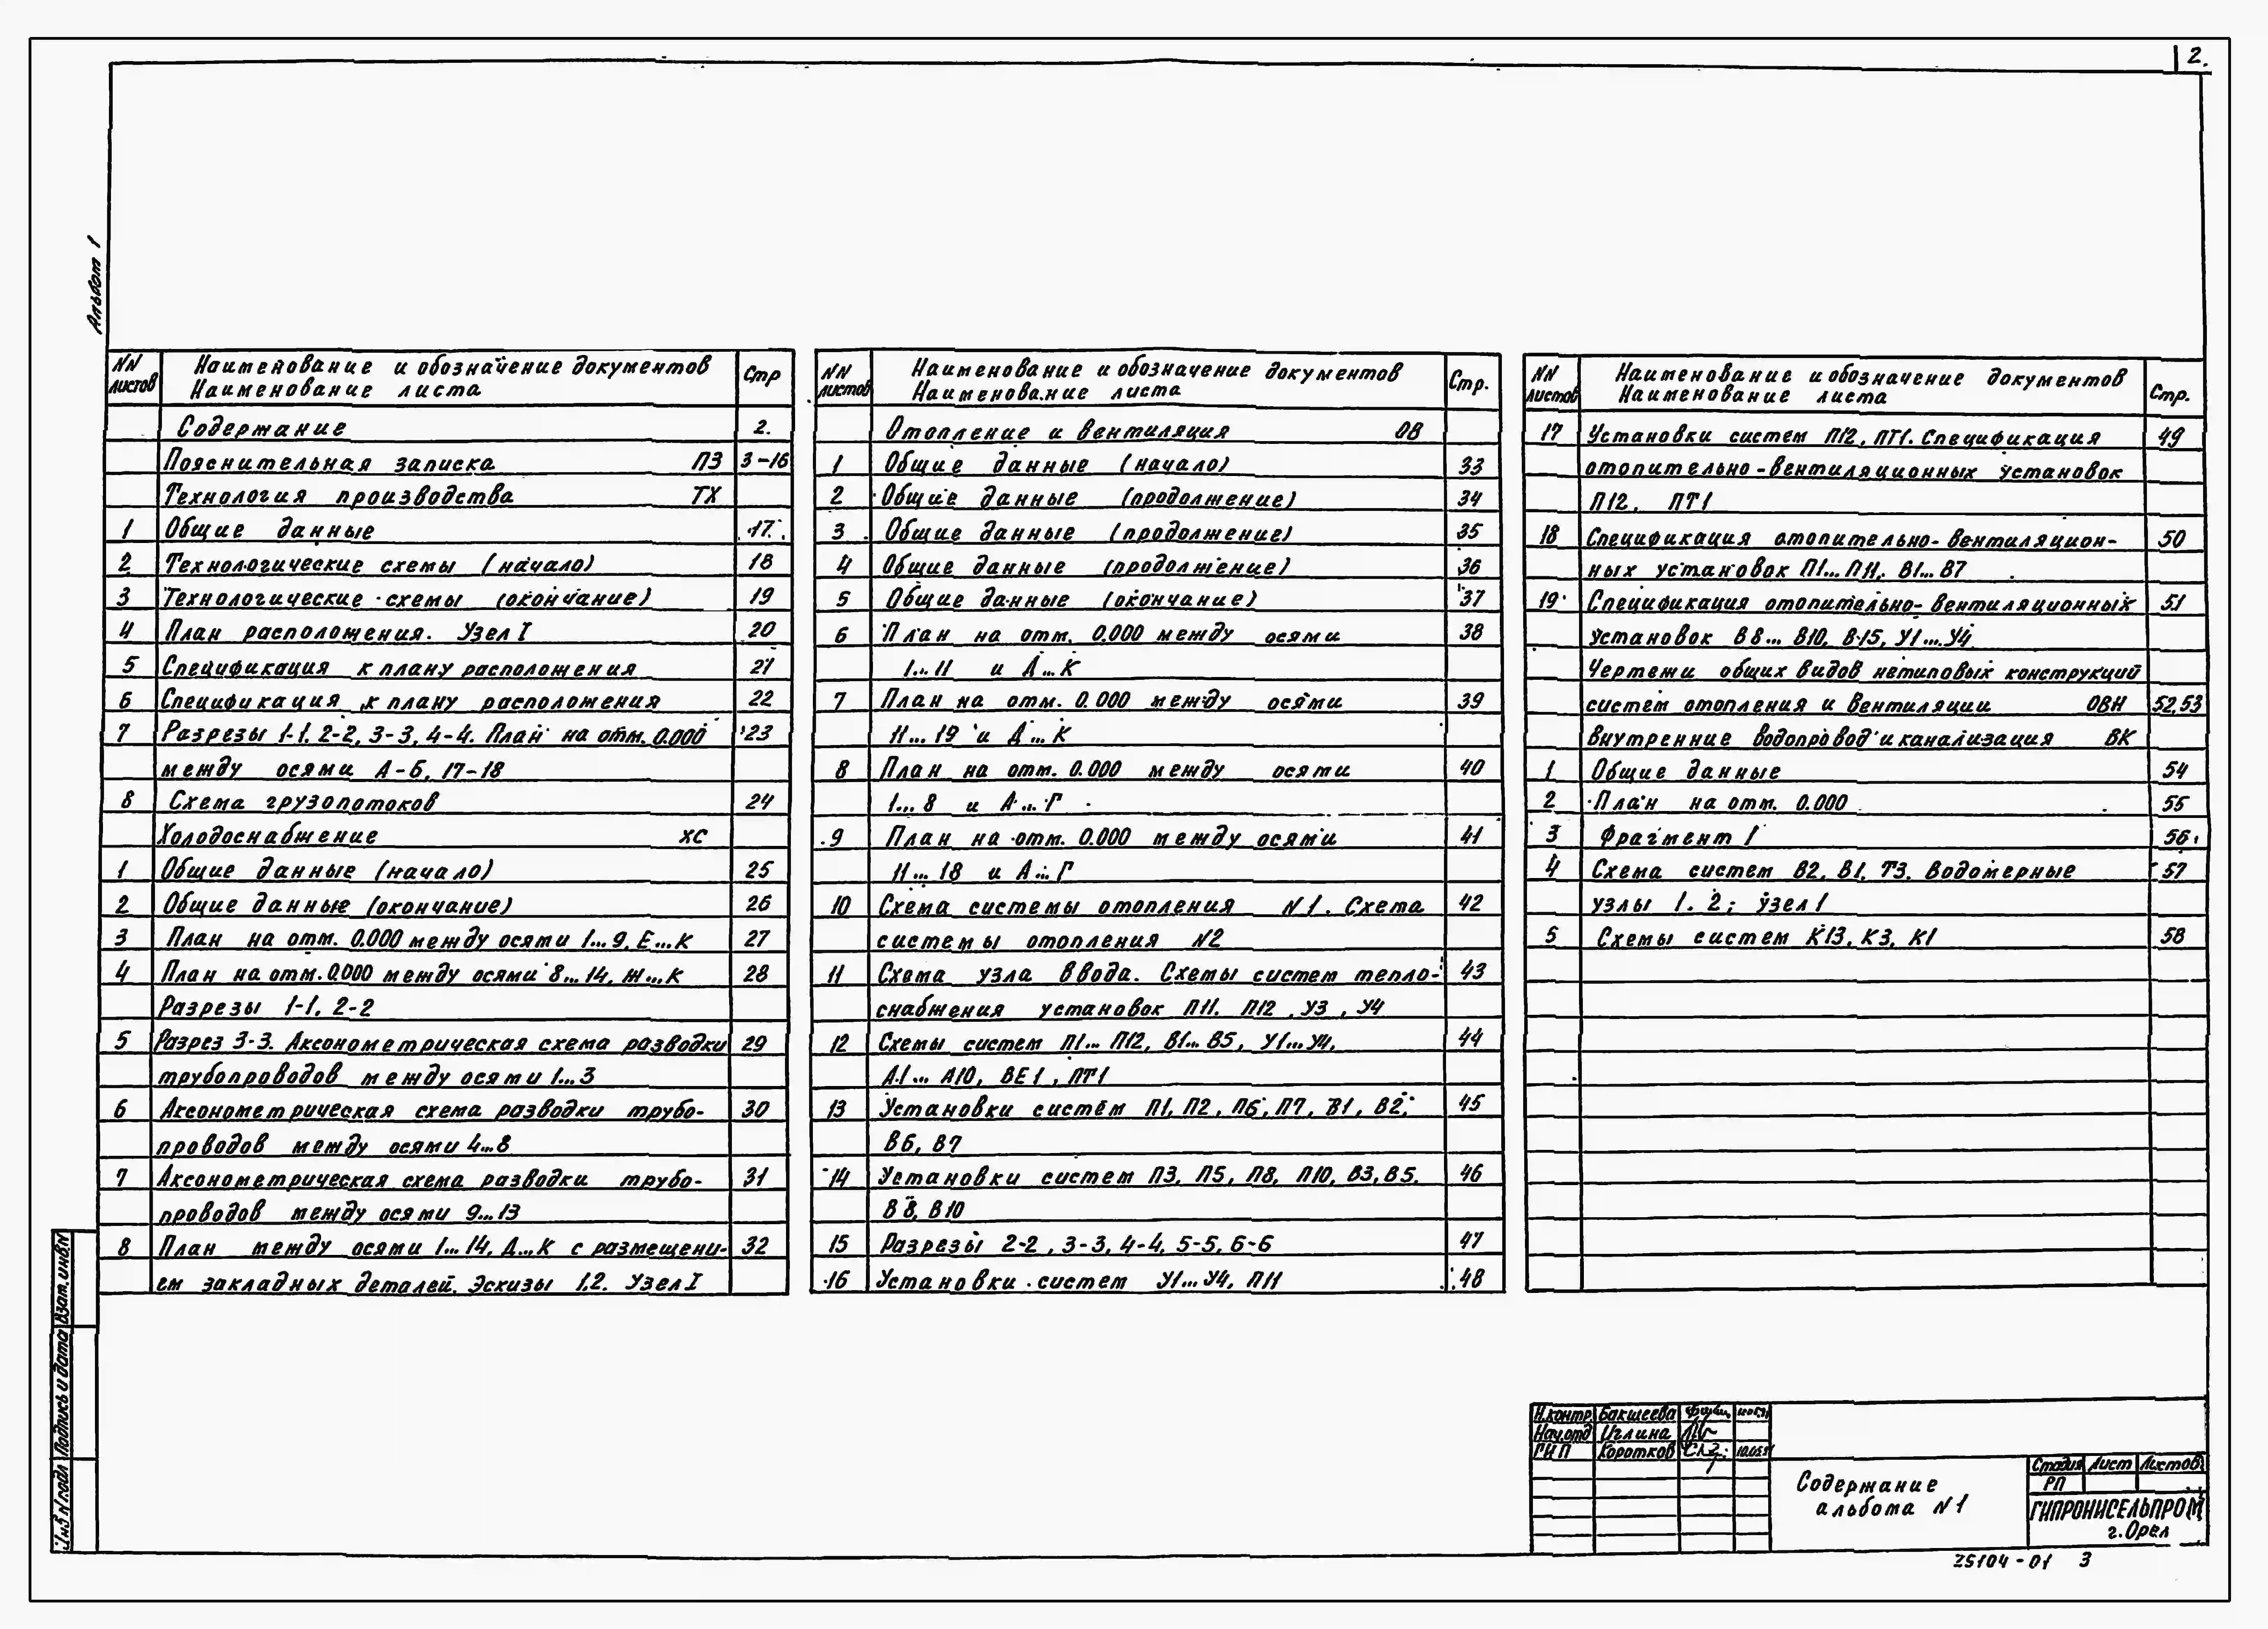 2.
Альбом 1
NN листов Наименование и обозначение документов Наименование листа Стр
Содержание 2.
Пояснительная записка ПЗ 3-16
Технология производства ТХ
1 Общие данные 17.
2 Технологические схемы (начало) 18
3 Технологические схемы (окончание) 19
4 План расположения. Узел I 20
5 Спецификация к плану расположения 21
6 Спецификация к плану расположения 22
7 Разрезы 1-1, 2-2, 3-3, 4-4. План на отм. 0.000 23
между осями А-Б, 17-18
8 Схема грузопотоков 24
Холодоснабжение ХС
1 Общие данные (начало) 25
2 Общие данные (окончание) 26
3 План на отм. 0.000 между осями 1...9, Е...К 27
4 План на отм. 0.000 между осями 8...14, Ж...К 28
Разрезы 1-1, 2-2
5 Разрез 3-3. Аксонометрическая схема разводки 29
трубопроводов между осями 1...3
6 Аксонометрическая схема разводки трубо- 30
проводов между осями 4...8
7 Аксонометрическая схема разводки трубо- 31
проводов между осями 9...13
8 План между осями 1...14, Д...К с размещени- 32
ем закладных деталей. Эскизы 1,2. Узел I
NN листов Наименование и обозначение документов Наименование листа Стр.
Отопление и вентиляция ОВ
1 Общие данные (начало) 33
2 Общие данные (продолжение) 34
3 Общие данные (продолжение) 35
4 Общие данные (продолжение) 36
5 Общие данные (окончание) 37
6 План на отм. 0.000 между осями 38
1...11 и Д...К
7 План на отм. 0.000 между осями 39
11...19 и Д...К
8 План на отм. 0.000 между осями 40
1...8 и А...Г
9 План на отм. 0.000 между осями 41
11...18 и А...Г
10 Схема системы отопления N1. Схема 42
системы отопления N2
11 Схема узла ввода. Схемы систем тепло- 43
снабжения установок П11, П12, У3, У4
12 Схемы систем П1... П12, В1... В5, У1...У4, 44
А1... А10, ВЕ1, ПТ1
13 Установки систем П1, П2, П6, П7, В1, В2, 45
В6, В7
14 Установки систем П3, П5, П8, П10, В3, В5, 46
В8, В10
15 Разрезы 2-2, 3-3, 4-4, 5-5, 6-6 47
16 Установки систем У1...У4, П11 48
NN листов Наименование и обозначение документов Наименование листа Стр.
17 Установки систем П12, ПТ1. Спецификация 49
отопительно-вентиляционных установок
П12, ПТ1
18 Спецификация отопительно-вентиляцион- 50
ных установок П1... П11, В1... В7
19 Спецификация отопительно-вентиляционных 51
установок В8... В10, В15, У1...У4
Чертежи общих видов нетиповых конструкций
систем отопления и вентиляции ОВН 52,53
Внутренние водопровод и канализация ВК
1 Общие данные 54
2 План на отм. 0.000 55
3 Фрагмент 1 56
4 Схема систем В2, В1, Т3. Водомерные 57
узлы 1, 2; узел 1
5 Схемы систем К13, К3, К1 58
Взам. инв.N
Подпись и дата
Инв.N подл
Н.контр. Бакшеева
Нач.отд Иглина
ГИП Коротков
Содержание
альбома N1
Стадия Лист Листов
РП
ГИПРОНИСЕЛЬПРОМ
г.Орел
25104-01 3